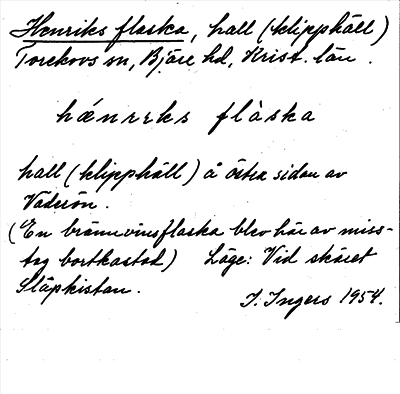 Henriks flaska, hall (klipphäll)
Torekovs sn, Bjäre hd, Krist. län.
hǽnreks flàska
hall (klipphäll) å östra sidan av
Väderön.
(En brännvinsflaska blev här av miss-
tag bortkastad) Läge: Vid skäret
Släpkistan.
I. Ingers 1954.